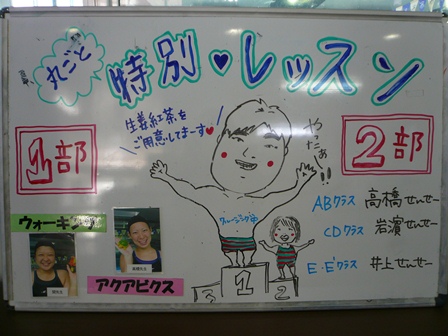 丸ごと
特別♥レッスン
生姜紅茶を
ご用意してまーす♥
やったぁ!!
1部
2部
ウォーキング
アクアビクス
ABクラス 高橋せんせー
CDクラス 岩濱せんせー
E・E'クラス 井上せんせー
3
1
2